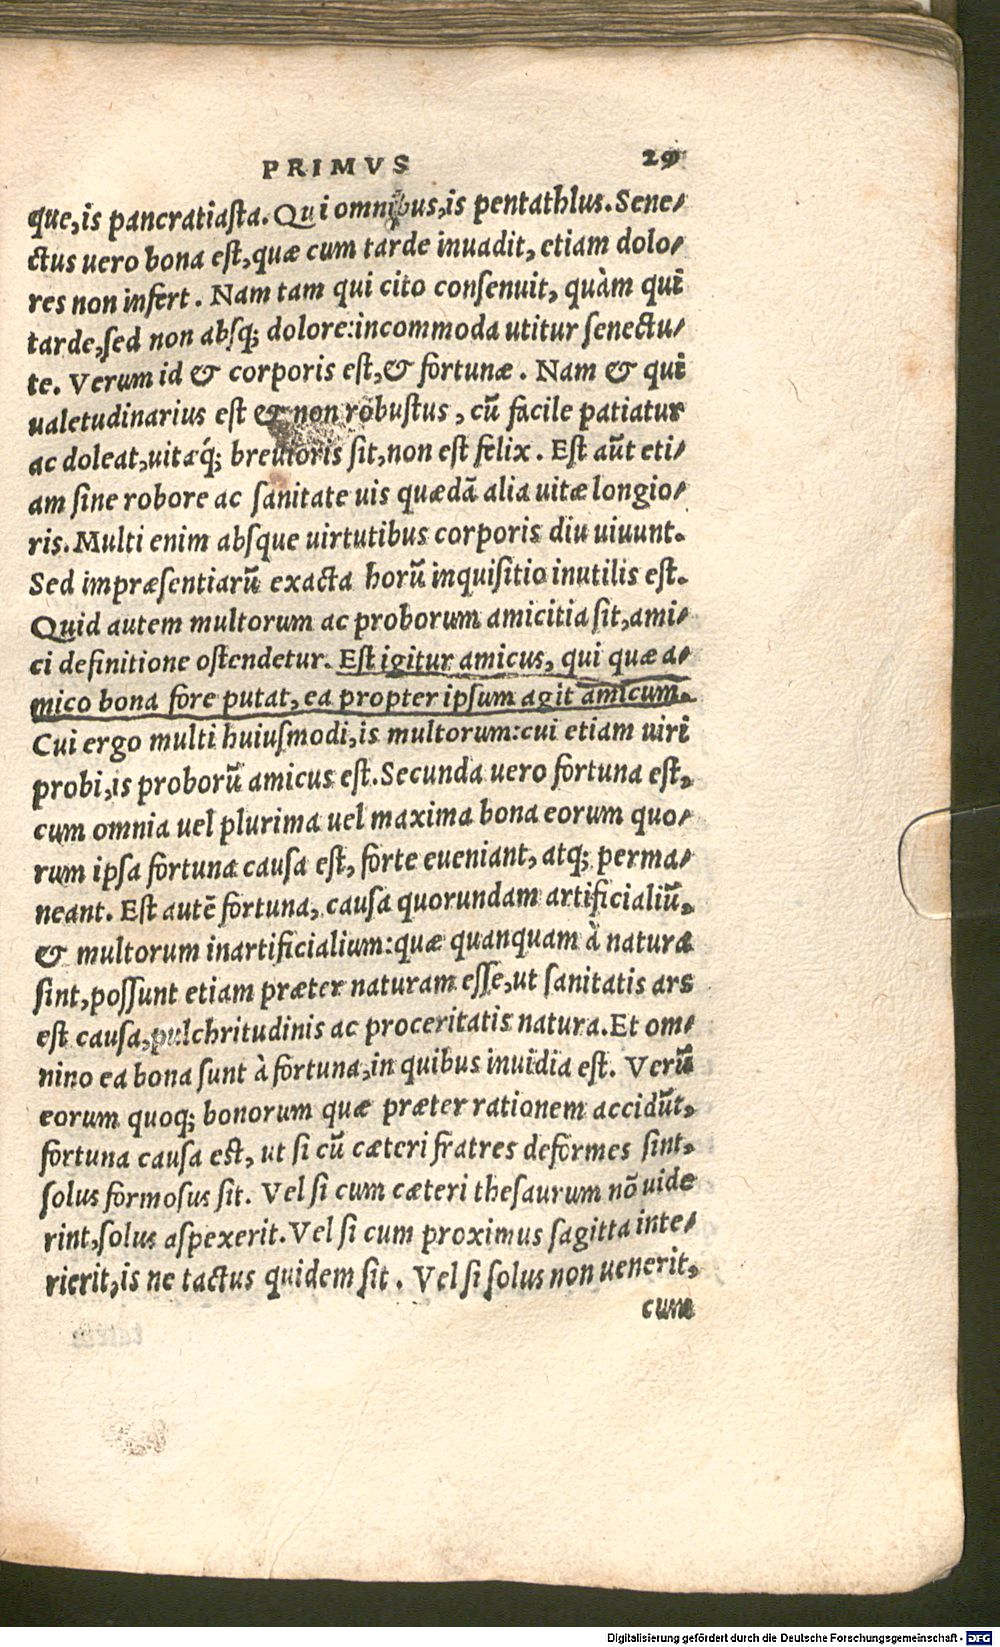 PRIMVS 29
que, is pancratiasta. Qui omnibus, is pentathlus. Sene-
ctus uero bona est, quæ cum tarde inuadit, etiam dolo-
res non infert. Nam tam qui cito consenuit, quàm qui
tarde, sed non absq; dolore: incommoda utitur senectu-
te. Verum id & corporis est, & fortunæ. Nam & qui
ualetudinarius est & non robustus, cū facile patiatur
ac doleat, uitæq́; breuioris sit, non est felix. Est aūt eti-
am sine robore ac sanitate uis quædā alia uitæ longio-
ris. Multi enim absque uirtutibus corporis diu uiuunt.
Sed impræsentiarū exacta horū inquisitio inutilis est.
Quid autem multorum ac proborum amicitia sit, ami-
ci definitione ostendetur. Est igitur amicus, qui quæ a-
mico bona fore putat, ea propter ipsum agit amicum.
Cui ergo multi huiusmodi, is multorum: cui etiam uiri
probi, is proborū amicus est. Secunda uero fortuna est,
cum omnia uel plurima uel maxima bona eorum quo-
rum ipsa fortuna causa est, forte eueniant, atq; perma-
neant. Est autē fortuna, causa quorundam artificialiū,
& multorum inartificialium: quæ quanquam à natura
sint, possunt etiam præter naturam esse, ut sanitatis ars
est causa, pulchritudinis ac proceritatis natura. Et om-
nino ea bona sunt à fortuna, in quibus inuidia est. Verū
eorum quoq; bonorum quæ præter rationem accidūt,
fortuna causa est, ut si cū cæteri fratres deformes sint,
solus formosus sit. Vel si cum cæteri thesaurum nō uide
rint, solus aspexerit. Vel si cum proximus sagitta inte-
rierit, is ne tactus quidem sit. Vel si solus non uenerit,
cum
Digitalisierung gefördert durch die Deutsche Forschungsgemeinschaft - DFG